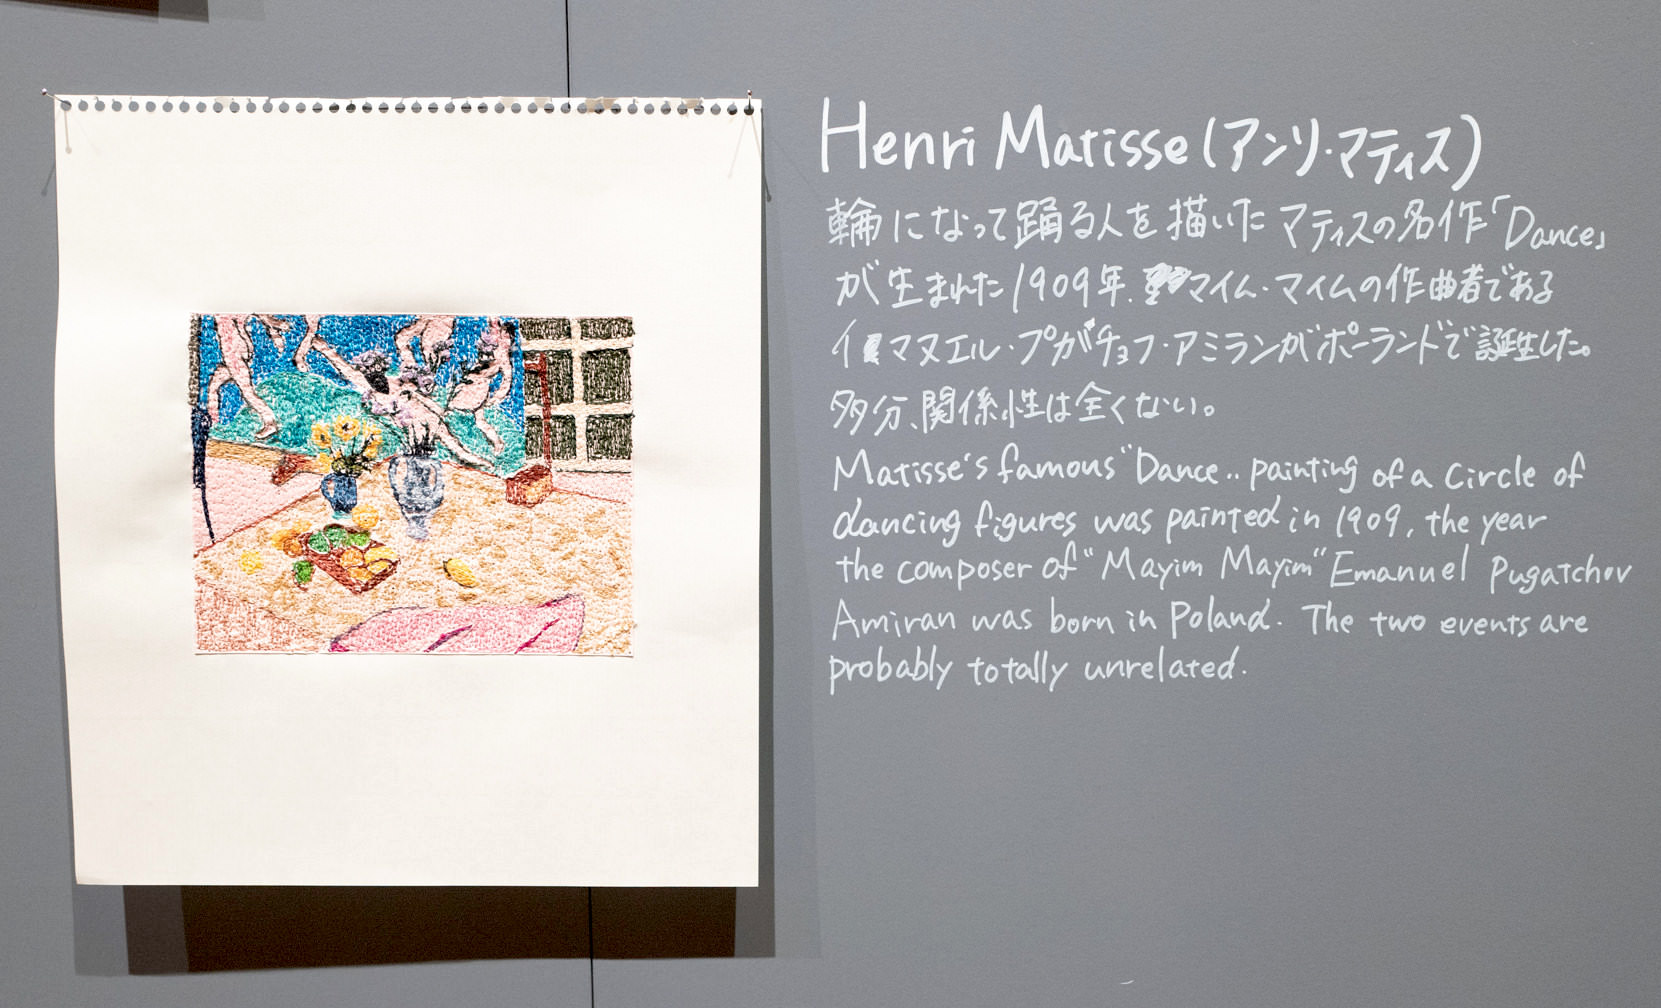 Henri Matisse (アンリ・マティス)
輪になって踊る人を描いた マティスの名作「Dance」
が生まれた1909年、マイム・マイムの作曲者である
イマヌエル・プガチョフ・アミランがポーランドで誕生した。
多分、関係性は全くない。
Matisse's famous "Dance" painting of a circle of
dancing figures was painted in 1909, the year
the composer of "Mayim Mayim" Emanuel Pugatchov
Amiran was born in Poland. The two events are
probably totally unrelated.